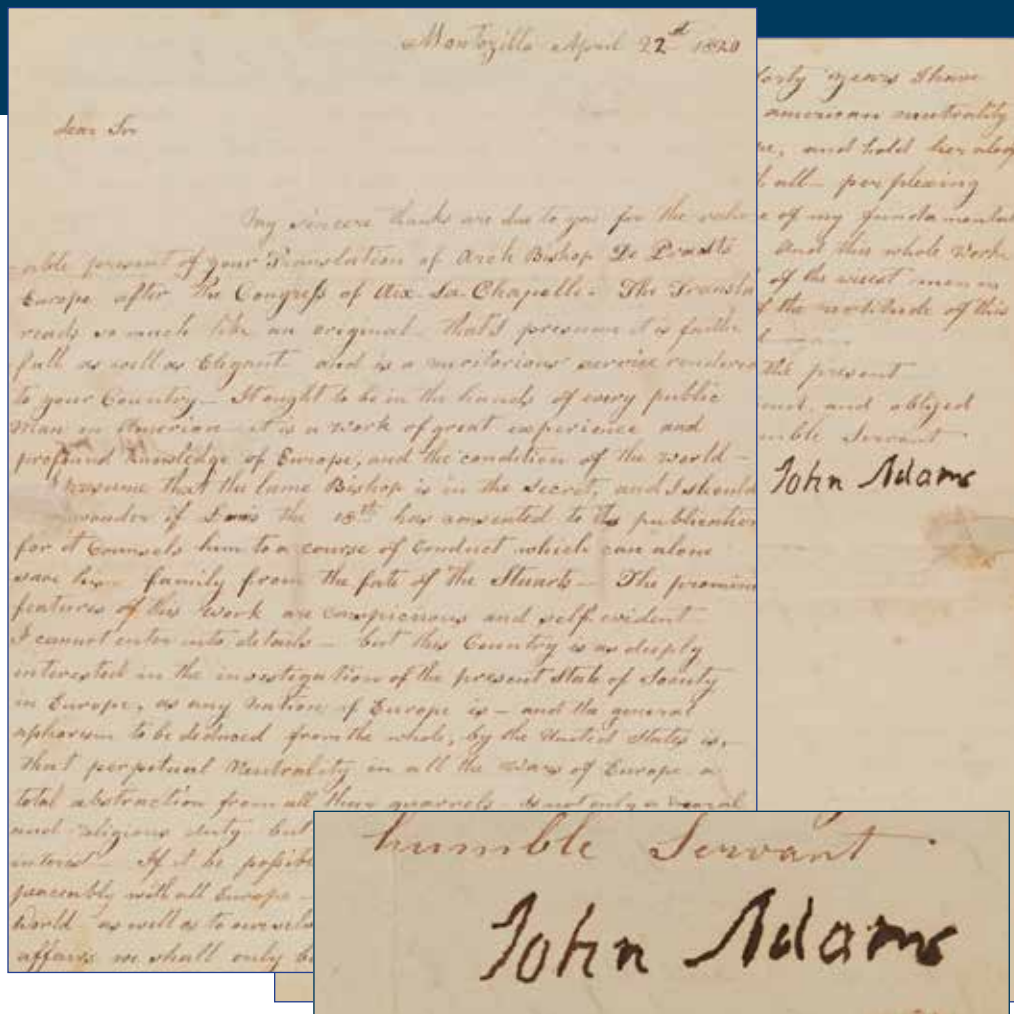 Montezillo April 22d 1820
dear Sir
My sincere thanks are due to you for the valu
able present of your Translation of Arch Bishop De Pradts
Europe after the Congress of Aix La Chapelle. The Transla
reads so much like an original that I presume it is faith
full as well as Elegant and is a meritorious service rendered
to your Country— It ought to be in the hands of every public
Man in American—it is a work of great experience and
profound knowledge of Europe, and the condition of the world—
presume that the Bishop is in the secret, and I should
wonder if the 18th has consented to the publication
for it Counsels him to a course of Conduct which can alone
save his family from the fate of the Stuarts— The promine
features of this work are conspicuous and self evident—
I cannot enter into details— but this Country is as deeply
interested in the investigation of the present State of Society
in Europe, as any Nation of Europe is— and the general
aphorism to be deduced from the whole, by the United States is,
that perpetual Neutrality in all the Wars of Europe a
total abstraction from all their quarrels is not only a moral
and religious duty but
interest— If it be possib
peaceably with all Europe—
World as well as to ourselv
affairs we shall only b
forty years I have
american neutrality
and hold her aloo
all— perplexing
e of my fundamental
And this whole Work
of the wisest men in
f the rectitude of this
the present
and obliged
mble Servant
John Adams
humble Servant
John Adams